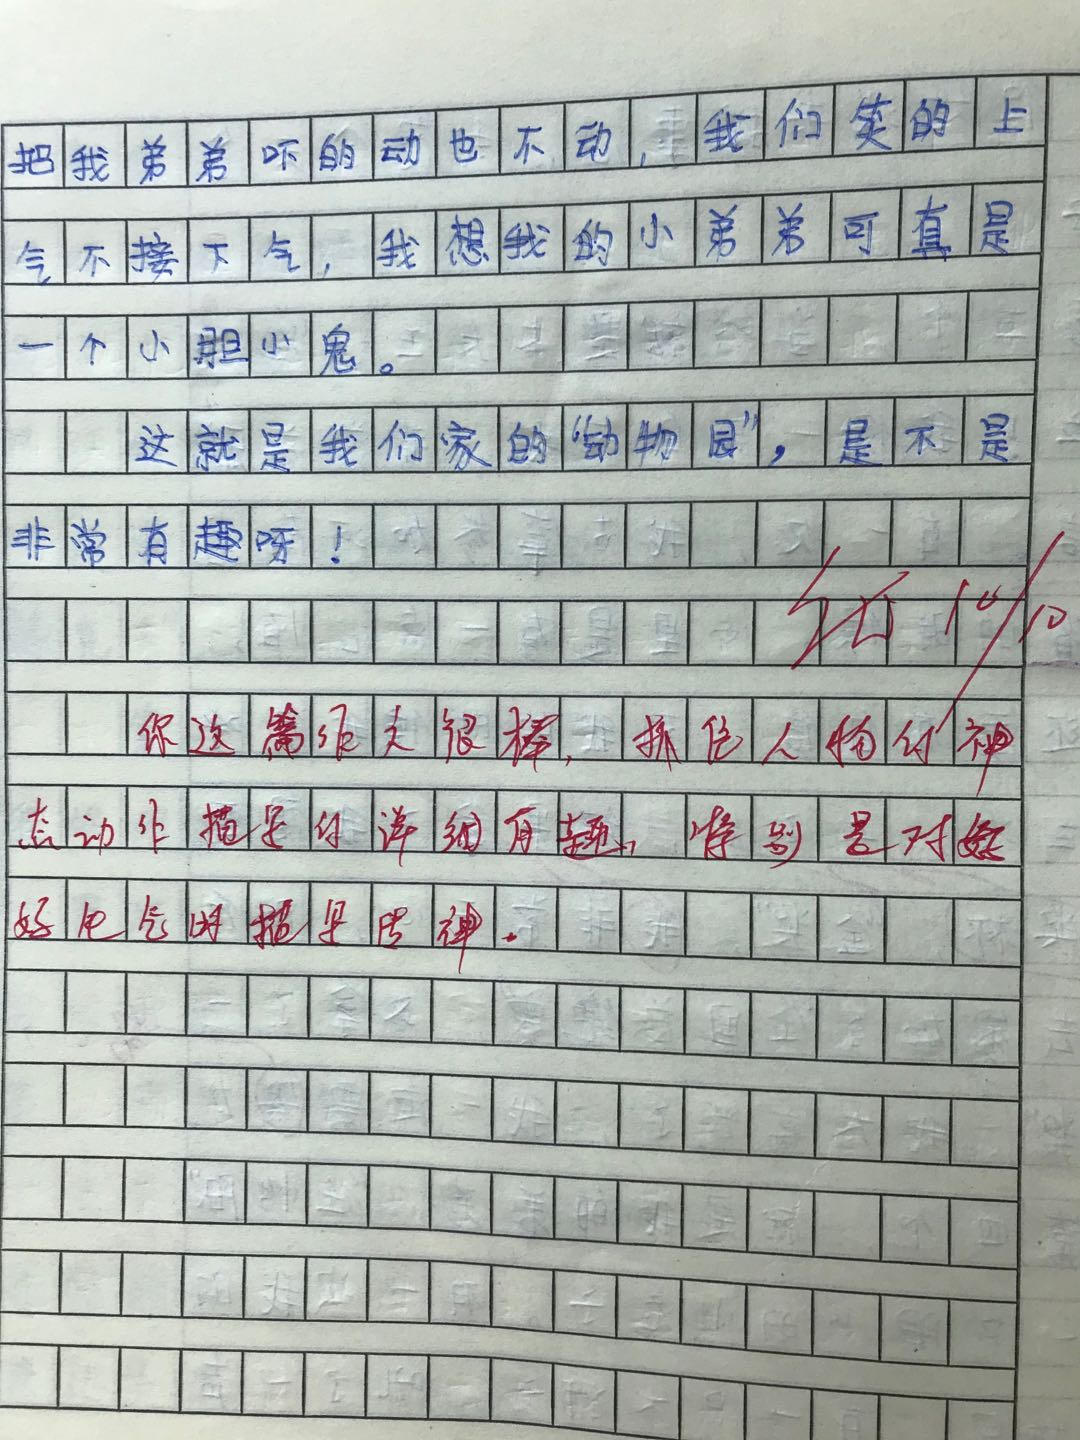 把我弟弟吓的动也不动，我们笑的上
气不接下气，我想我的小弟弟可真是
一个小胆小鬼。
这就是我们家的“动物园”，是不是
非常有趣呀！
10/10
你这篇作文很棒，抓住人物的神
态动作描写的详细有趣，特别是对妈
妈生气时描写传神。